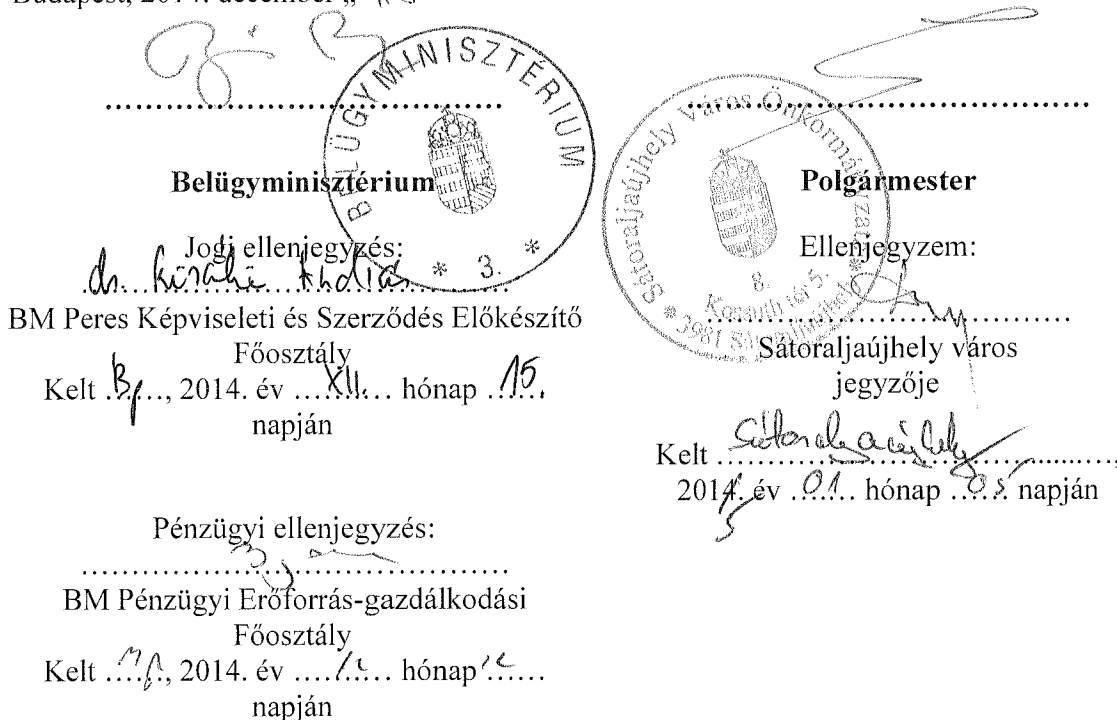 Budapest, 2014. december „
BELÜGYMINISZTÉRIUM
* 3. *
Belügyminisztérium
Jogi ellenjegyzés:
dr.
BM Peres Képviseleti és Szerződés Előkészítő
Főosztály
Kelt Bp., 2014. év XII. hónap 15.
napján
Pénzügyi ellenjegyzés:
BM Pénzügyi Erőforrás-gazdálkodási
Főosztály
Kelt ......, 2014. év 12 hónap 12
napján
Sátoraljaújhely Város Önkormányzata
8.
Kossuth tér 5.
* 3981 Sátoraljaújhely *
Polgármester
Ellenjegyzem:
Sátoraljaújhely város
jegyzője
Kelt Sátoraljaújhely,
2014. év 01. hónap 05 napján
5